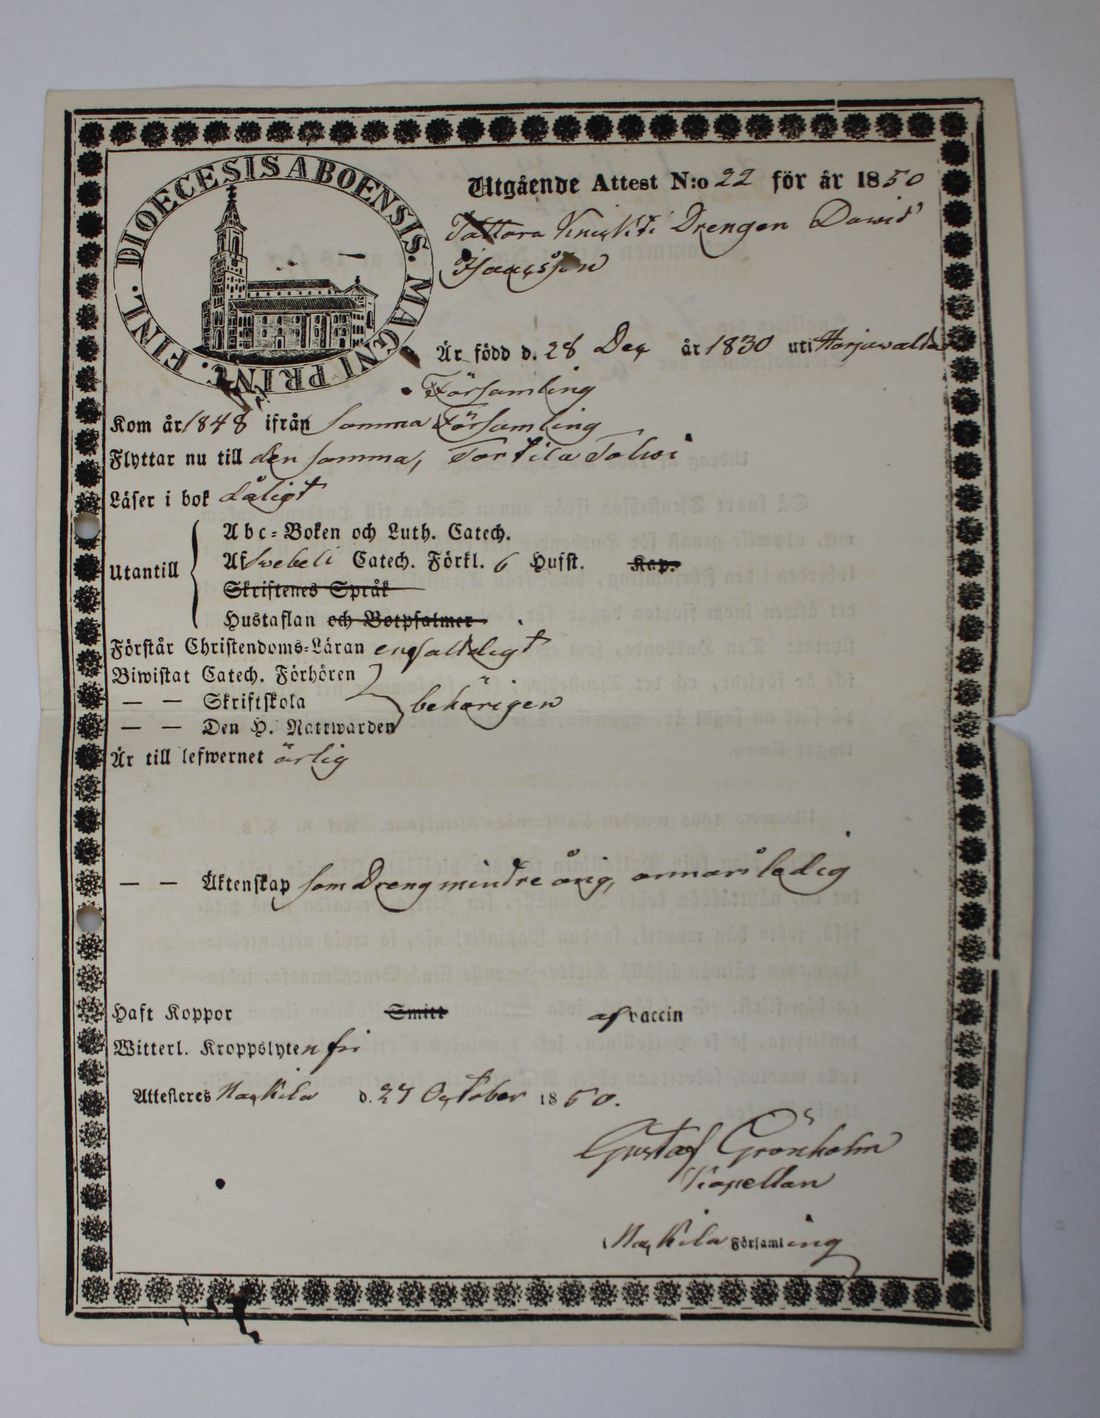 DIOECESIS ABOENSIS. MAGNI PRINC. FINL.
Utgående Attest N:o 22 för år 1850
Tattara Knickti Drengen Dawid
Isacsson
Är född d. 28 Dec år 1830 uti Harjawalda
Församling
Kom år 1848 ifrån samma Församling
Flyttar nu till den samma, Torttila Tolwi
Läser i bok dåligt
Utantill
Abc-Boken och Luth. Catech.
Af Swebeli Catech. Förkl. 6 Hufst. Kap.
Skriftenes Språk
Hustaflan och Botpsalmer
Förstår Christendoms-Läran enfaldigt
Biwistat Catech. Förhören
— — Skriftskola behörigen
— — Den H. Nattwarden
Är till lefwernet ärlig
— — Äktenskap som Dreng mindre årig, annars ledig
Haft Koppor Smitt af vaccin
Witterl. Kroppslyten fri
Attesteres Nackila d. 27 October 1850.
Gustaf Grönholm
Kapellan
Nackila Församling